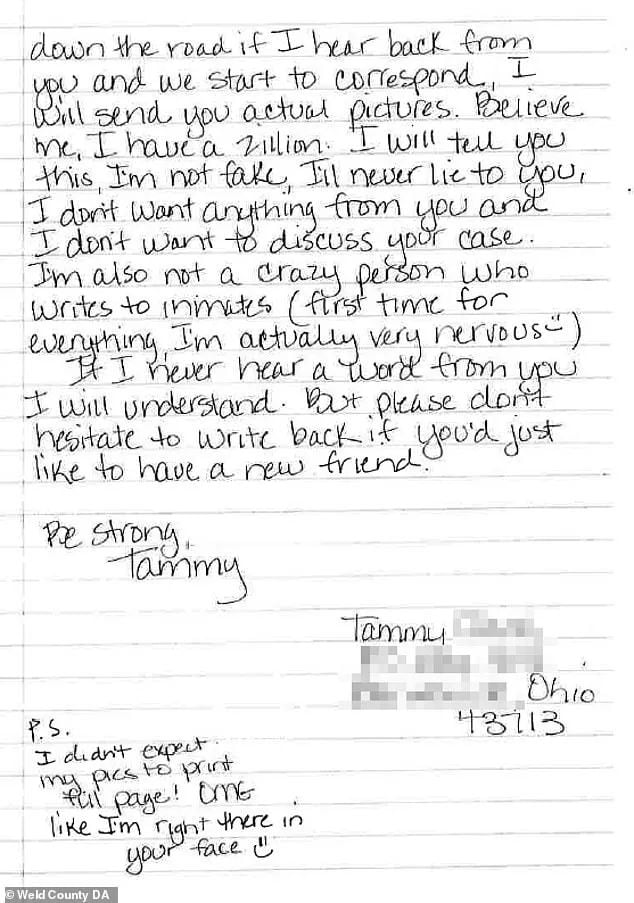 down the road if I hear back from
you and we start to correspond, I
will send you actual pictures. Believe
me, I have a zillion. I will tell you
this, I'm not fake, I'll never lie to you,
I don't want anything from you and
I don't want to discuss your case.
I'm also not a crazy person who
writes to inmates (first time for
everything, I'm actually very nervous☺)
If I never hear a word from you
I will understand. But please don't
hesitate to write back if you'd just
like to have a new friend.
Be strong,
Tammy
Tammy
Ohio
43713
P.S.
I didn't expect
my pics to print
full page! OMG
like I'm right there in
your face ☺
© Weld County DA